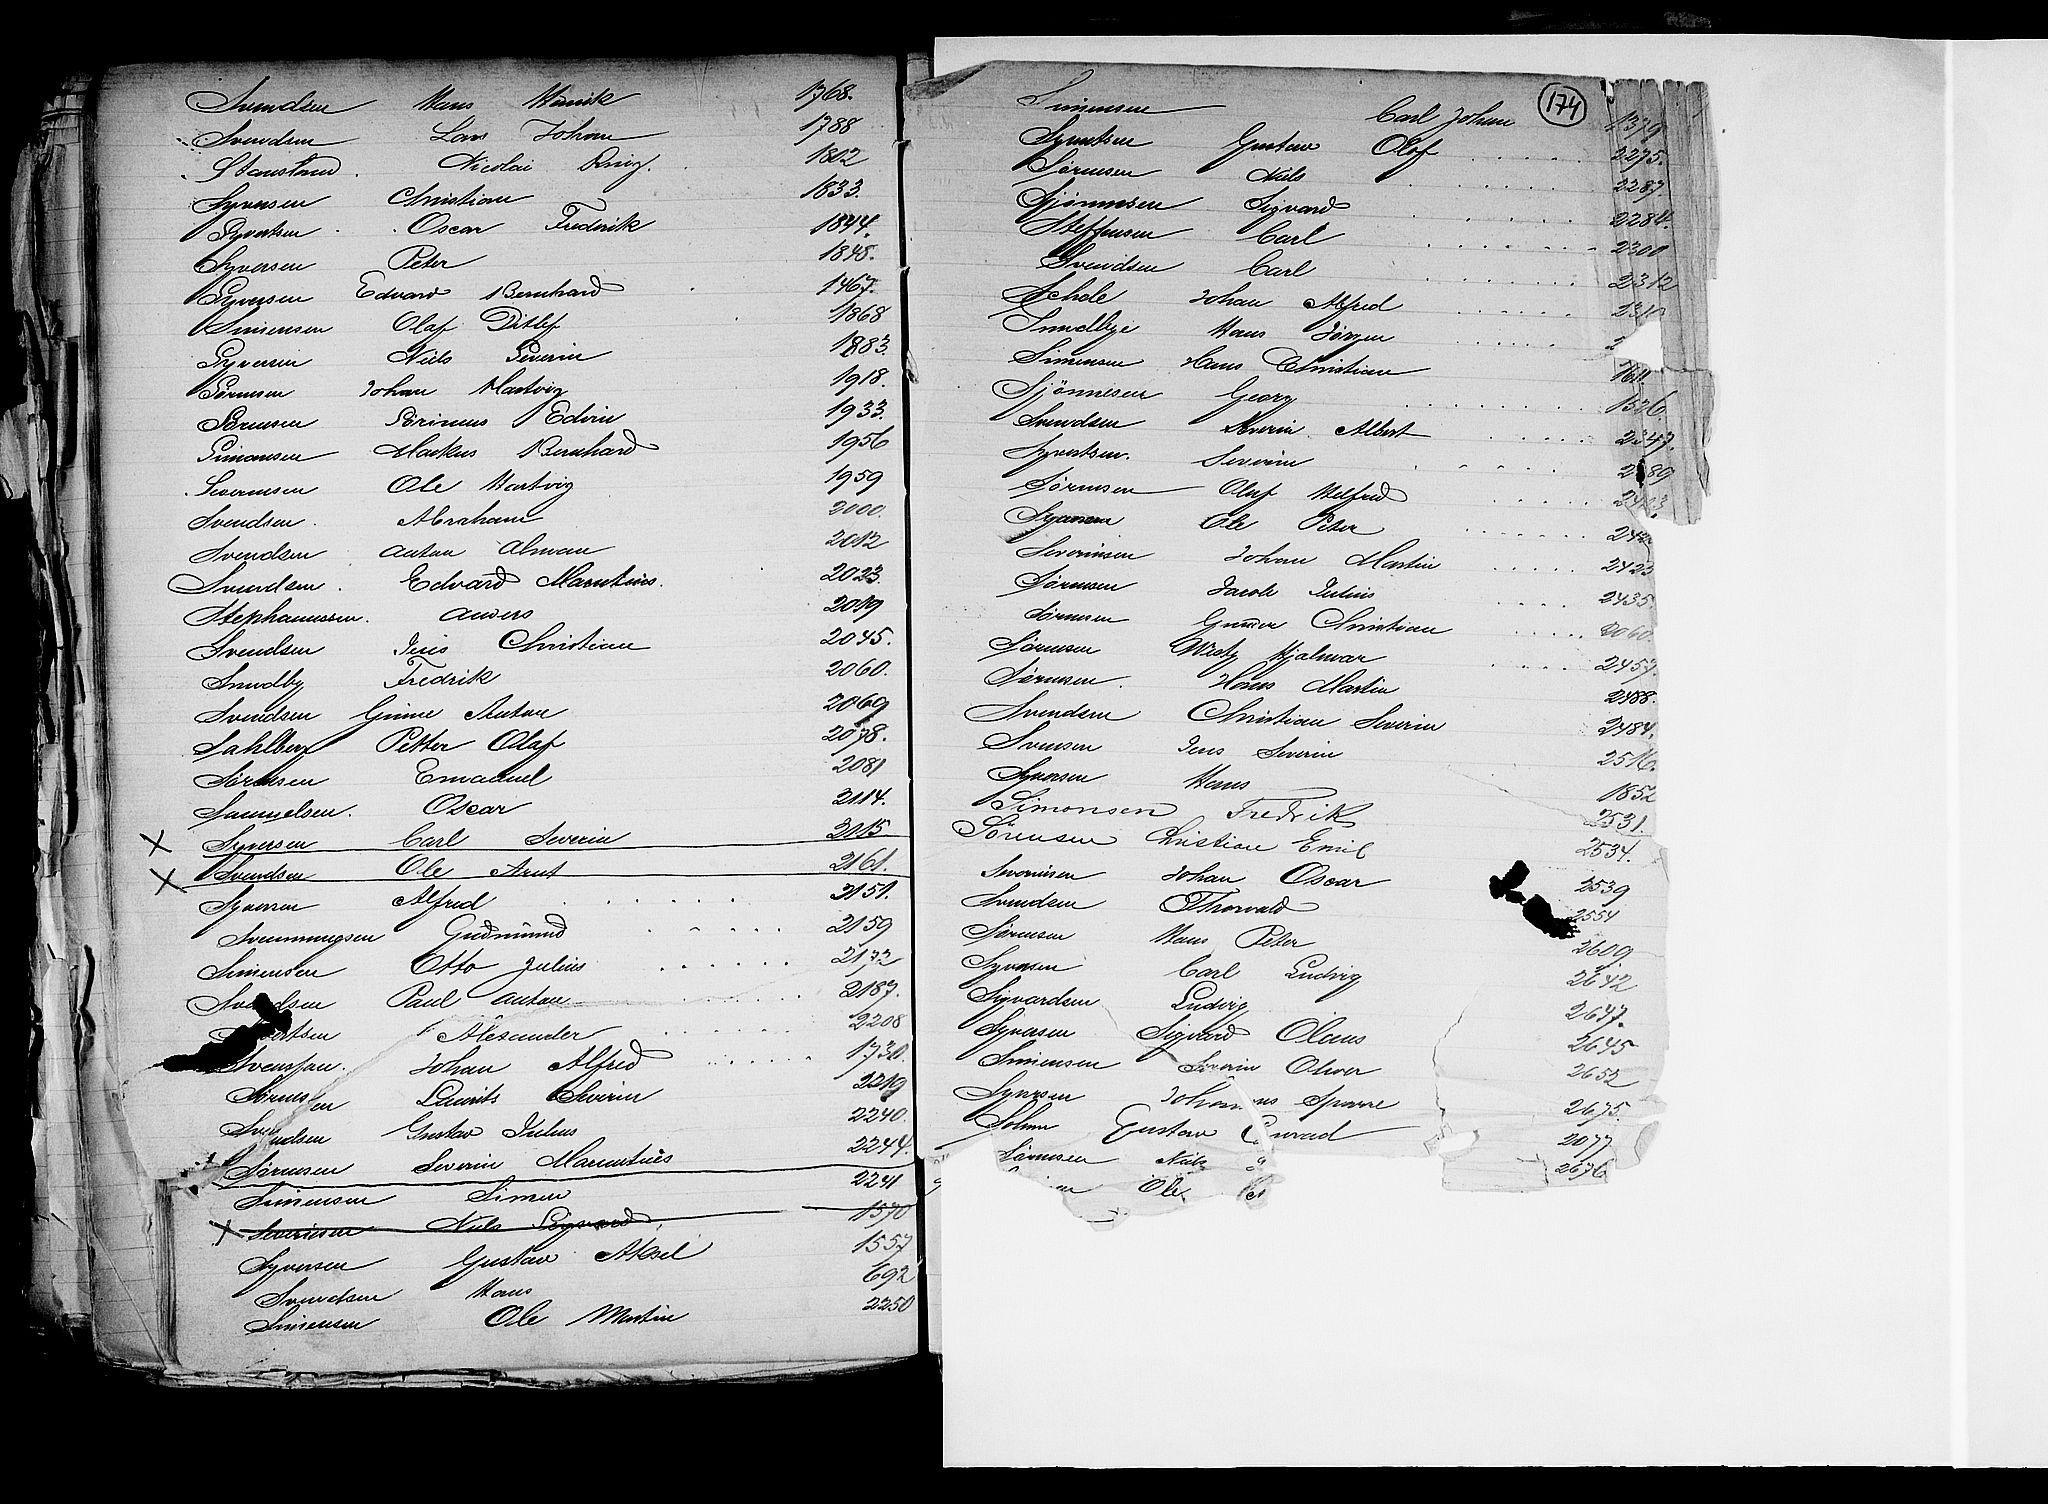 Svendsen Hans Henrik 1768.
Svendsen Lars Johan 1788
Nicolai 1802
Syversen Christian 1833.
Syvertsen Oscar Fredrik 1844.
Syversen Peter 1848.
Syversen Edvard Bernhard 1467.
Simensen Olaf Ditlef 1868
Syversen Niels Severin 1883.
Sørensen Johan Hartvig 1918.
Sørensen Sørinus Edvin 1933.
Simonsen Markus Bernhard 1956
Severinsen Ole Hartvig 1959
Svendsen. Abraham 2000.
Svendsen Anton 2012
Svendsen. Edvard Marentius. 2023.
Stephanussen. Anders 2019
Svendsen Jens Christian 2045.
Sundby Fredrik 2060.
Svendsen Anton 2069
Sahlberg Petter Olaf 2078.
Sørensen Emanuel 2081
Samuelsen. Oscar 2114.
X Syversen Carl Severin 2115
X Svendsen Ole Arnt 2161.
Syversen Alfred 2151.
Svenningsen Gudmund 2159
Simensen Otto Julius 2172
Svendsen Paul Anton 2187.
Alexander 2208
Johan Alfred 1730.
Sørensen Laurits Severin 2219
Svendsen Gustav Julius 2240.
Sørensen Severin Marentius 2244.
Simensen Simen 2241
X Severinsen Niels Sigvard 1570
Syversen Gustav Aksel 1557
Svendsen Hans 692
Simensen Ole Martin 2250
174
Simensen Carl Johan 1379
Syvertsen Gustav Olaf 2275.
Sørensen Niels 2287.
Sjønnesen Sigvard 2284.
Steffensen Carl 2300
Svendsen Carl 2312
Johan Alfred
Sundbye Hans Jørgen
Simensen Hans Christian 1611.
Sjønnesen Georg 1526
Svendsen Severin Albert 2347.
Syvertsen. Severin
Sørensen Olaf Helfred
Syversen Ole Peter
Severinsen Johan Martin 2423
Sørensen Jacob Julius 2435.
Sørensen Gunner Christian 2060.
Sørensen Hjalmar 2457.
Sørensen. Hans Martin 2488.
Svendsen Christian Severin 2484.
Svensen Jens Severin 2516.
Syversen Hans 1852
Simonsen Fredrik 2531.
Sørensen Christian Emil 2534.
Severinsen Johan Oscar 2539
Svendsen Thorvald 2554
Sørensen Hans Peter 2609
Syversen Carl Ludvig 2642
Sigvardsen Ludvig 2647.
Syversen Sigvard Olaus 2645
Simensen Severin Oliver 2652
Syversen Johannes Sparre 2675.
Gustav Conrad 2077
Sørensen Niels 2676
Ole